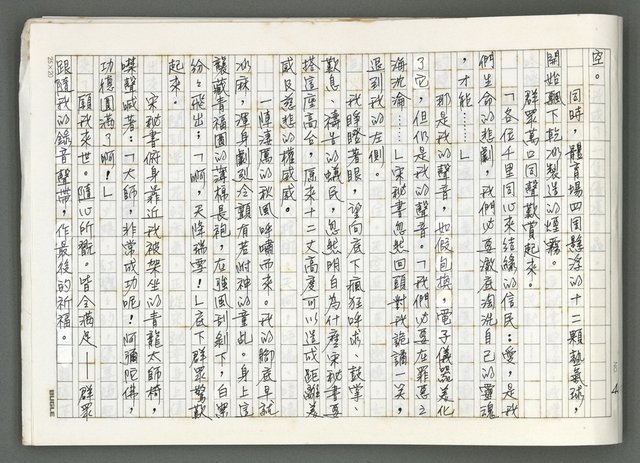 空。
同時，體育場四周懸浮的十二顆熱氣球，
開始飄下乾冰製造的煙霧。
群眾萬口同聲歡賞起來。
「各位千里同心來結緣的信民：愛，是我
們生命的悲劇，我們必要徹底淘洗自己的靈魂
，才能……」
那是我的聲音，如假包換，電子儀器美化
了它，但仍是我的聲音。「我們必要在罪惡之
海沈淪……」宋秘書忽然回頭對我詭譎一笑，
退到我的左側。
我睜瞪著眼，望向底下瘋狂呼求、鼓掌、
歎息、禱告的蟻民，忽然明白為什麼宋秘書要
搭這座高台，原來十二丈高度可以造成距離美
感及慈悲的權威感。
一陣淒厲的秋風呼嘯而來。我的腳底早就
冰麻，渾身劇到冷顫有若附神的童乩。身上這
襲藏青福團的薄棉長袍，在強風刮刷下，白絮
紛紛飛出；「啊，天降瑞雪！」底下群眾驚歎
起來。
宋秘書俯身靠近我被架坐的青龍太師椅，
噤聲喊著：「大師，非常成功呢！阿彌陀佛，
功德圓滿了啊！」
願我來世。隨心所翫。皆令滿足——群眾
跟隨我的錄音聲帶，作最後的祈福。
NO.
4
25×20
BUGLE